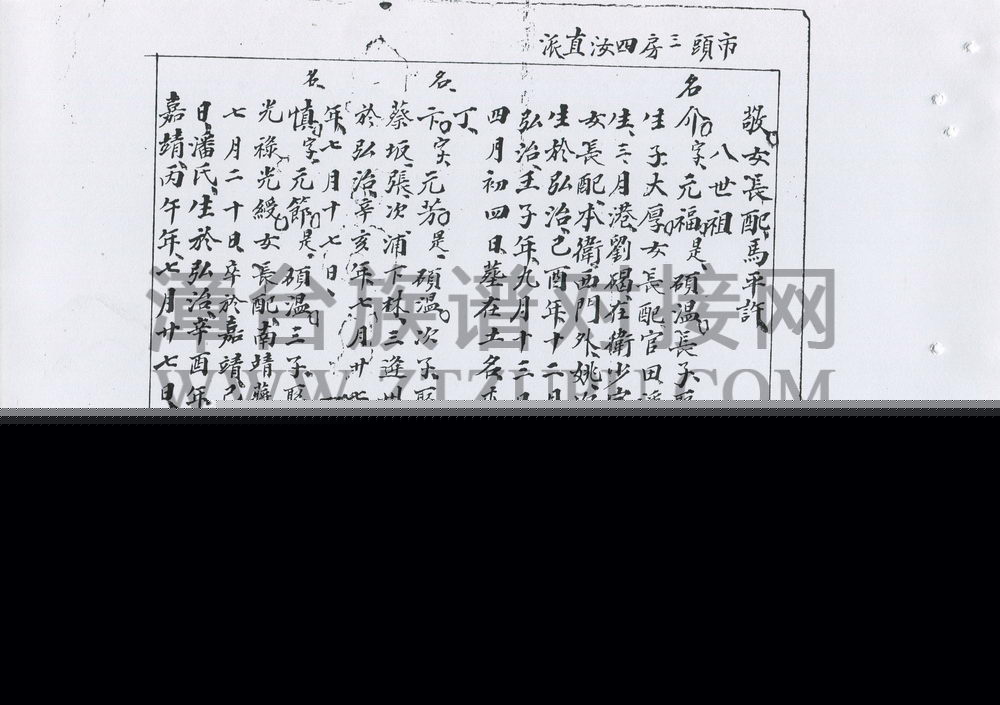 市頭三房四汝直派
敬女長配馬平許
八世祖
名介字元福是碩温長子
生子大厚女長配官田
生三月港劉碣在衛少
女長配本衛西門外姚
生於弘治己酉年十二月
弘治壬子年九月十三日
四月初四日墓在土名
丁
名卞字元芳是碩温次子
蔡坂張次浦下林三逢
於弘治辛亥年七月廿
年七月十七日
名慎字元節是碩温三子
光祿光綬女長配南靖
七月二十日卒於嘉靖
日潘氏生於弘治辛酉年
嘉靖丙午年七月廿七日
漳台族谱对接网
WWW.ZTZUPU.COM